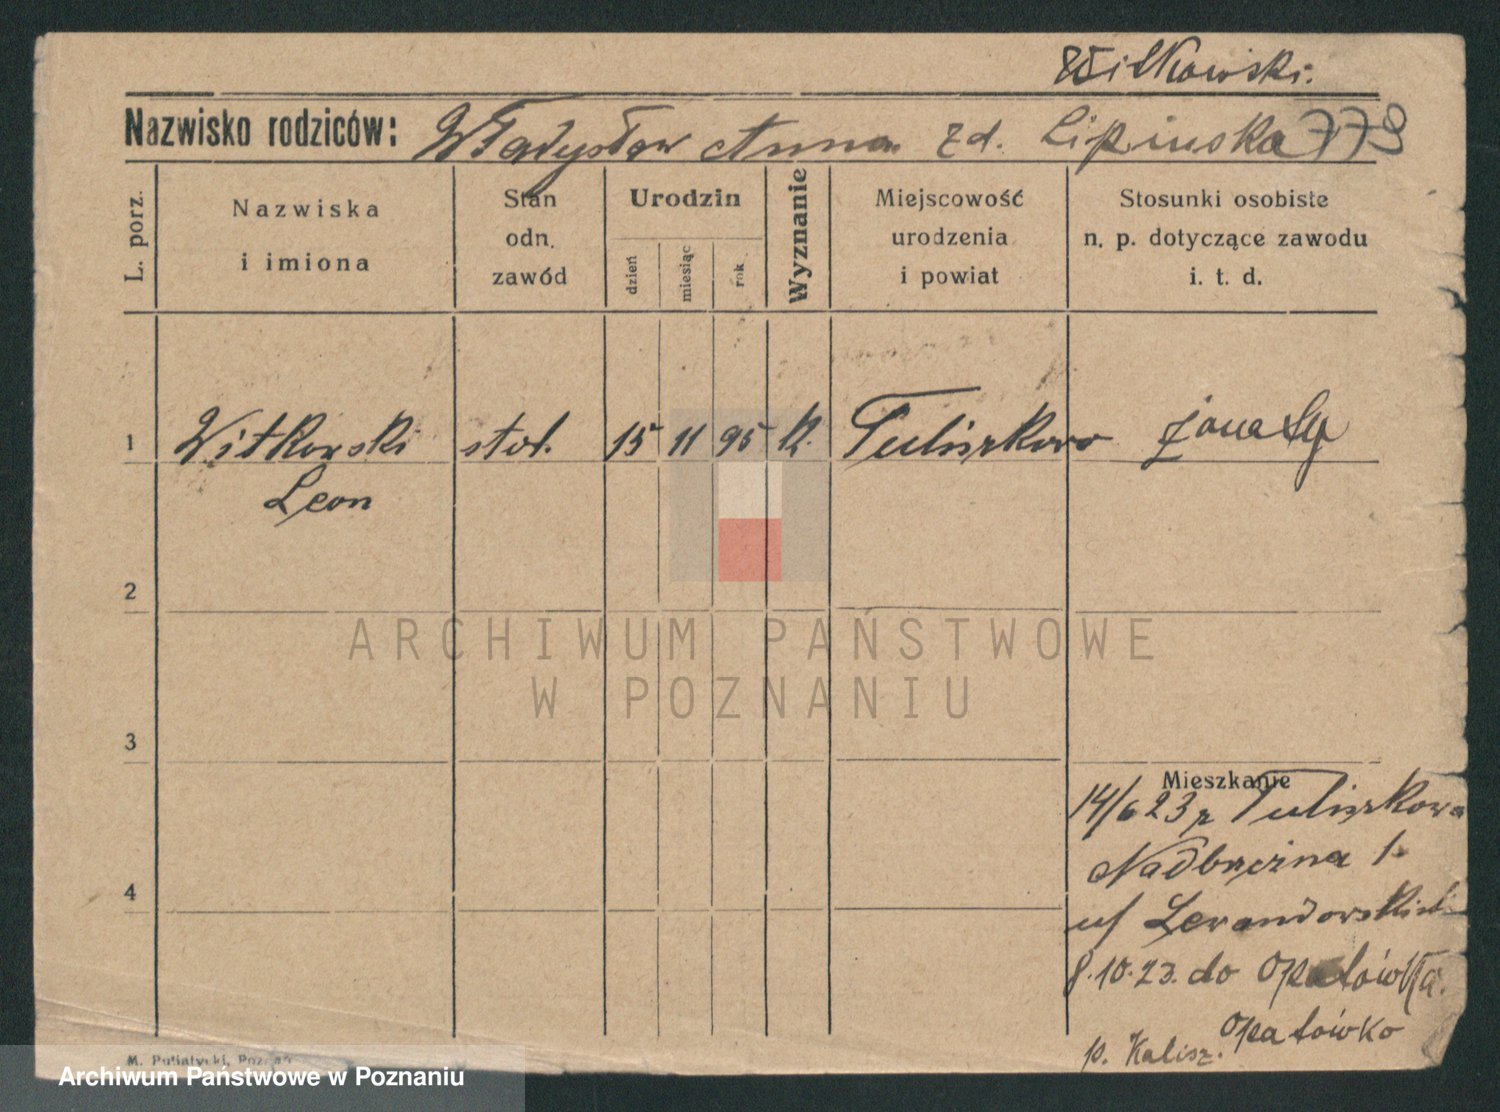 Witkowski.
Nazwisko rodziców: Władysław Anna zd. Lipińska 779
L. porz.
Nazwiska
i imiona
Stan
odn.
zawód
Urodzin
dzień
miesiąc
rok
Wyznanie
Miejscowość
urodzenia
i powiat
Stosunki osobiste
n. p. dotyczące zawodu
i. t. d.
1 Witkowski stol. 15 11 95 k. Tuliszkowo żonaty
Leon
2
ARCHIWUM PAŃSTWOWE
W POZNANIU
3
Mieszkanie
14/6 23 z Tuliszkowa
Nadbrzeżna 1.
4
u/ Lewandowskich
8.10.23. do Opatówka.
Opatówko
p. Kalisz.
M. Putiatycki, Poznań
Archiwum Państwowe w Poznaniu